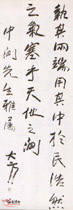 執其兩端用其中於民浩然
之氣塞乎天地之間
中閒先生雅屬
大方